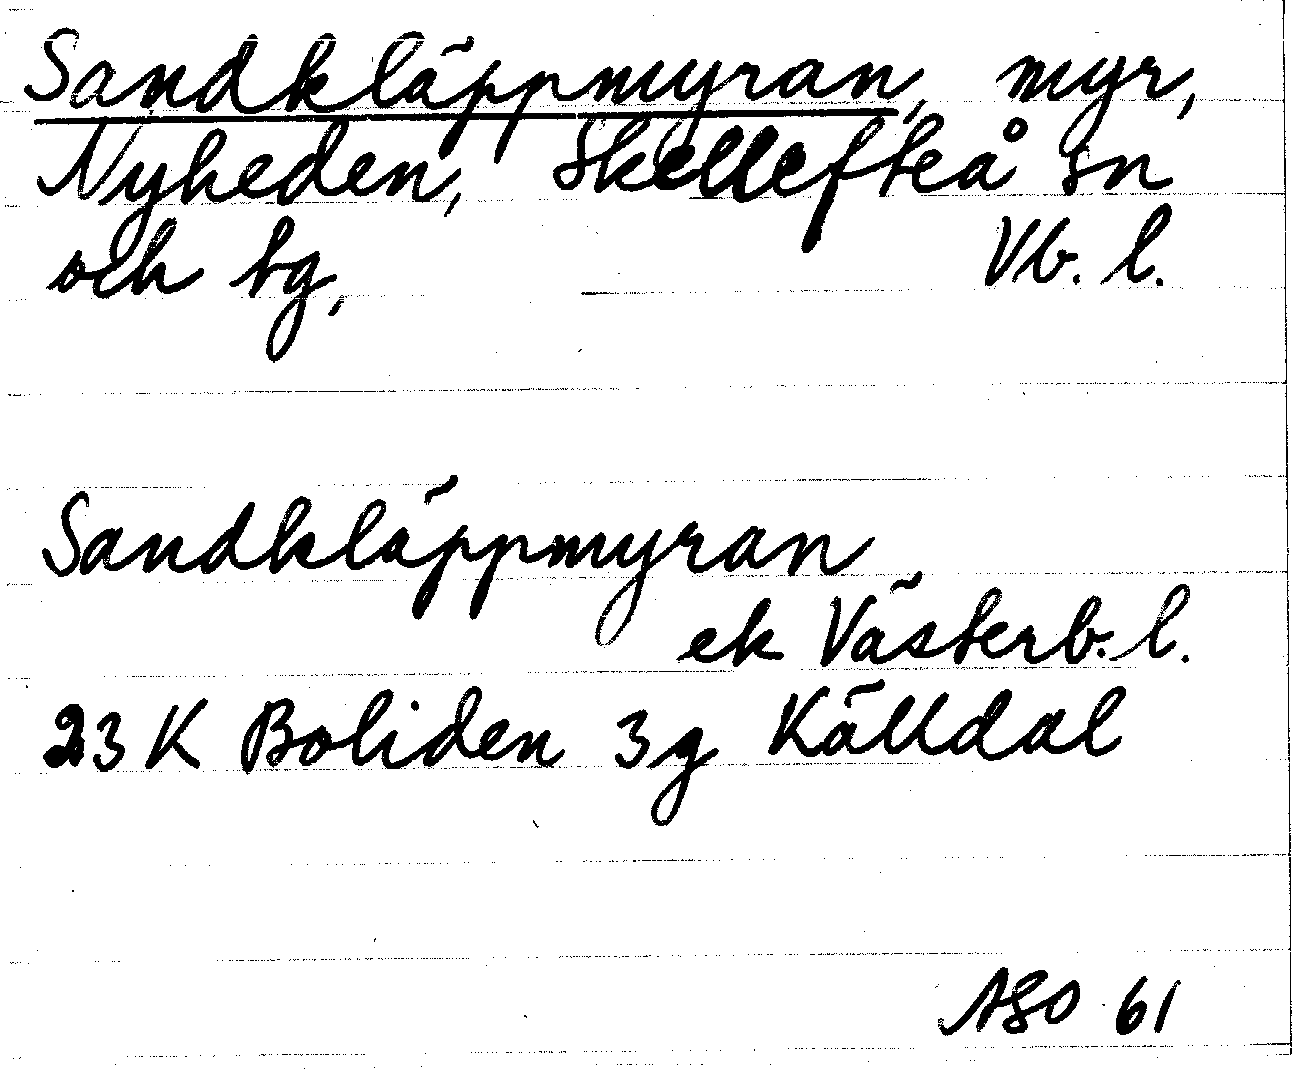 Sandkläppmyran, myr,
Nyheden, Skellefteå sn
och tg, Vb. l.
Sandkläppmyran
ek Västerb. l.
23 K Boliden 3g Källdal
ASO 61